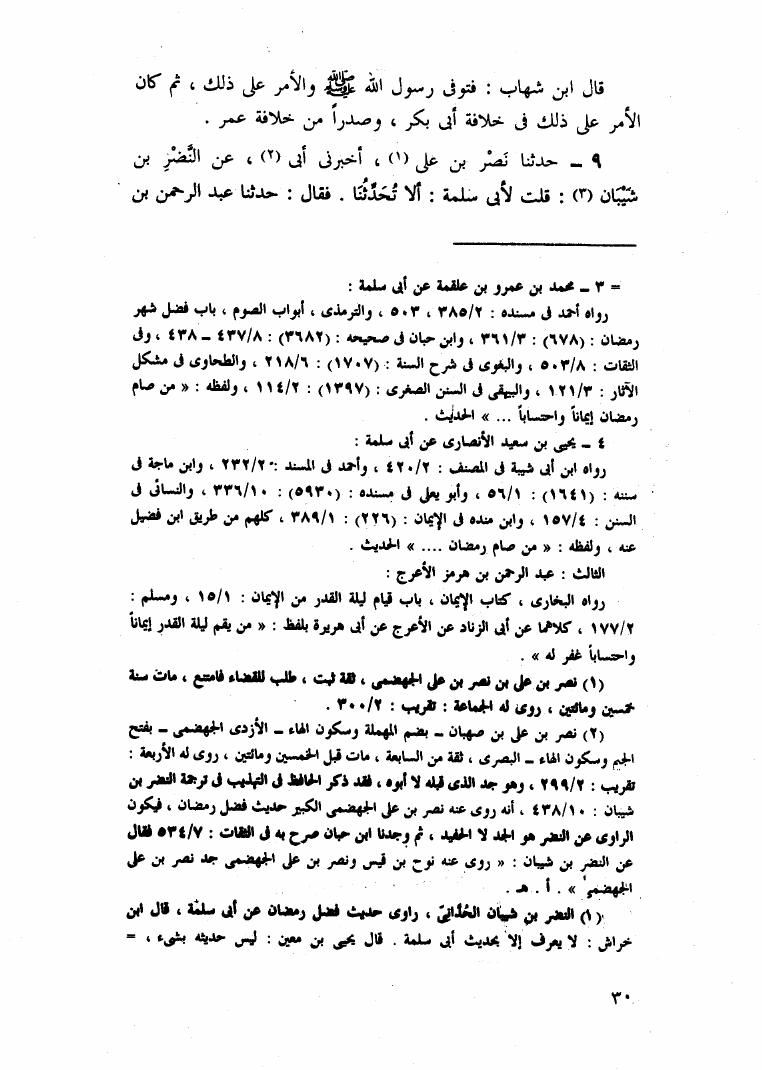 قال ابن شهاب : فتوفى رسول الله ﷺ والأمر على ذلك ، ثم كان
الأمر على ذلك فى خلافة أبى بكر ، وصدراً من خلافة عمر .
٩ ــ حدثنا نَصْر بن على (١) ، أخبرنى أبى (٢) ، عن النَّضْرِ بن
شَيْبَان (٣) : قلت لأبى سلمة : ألا تُحَدِّثُنَا . فقال : حدثنا عبد الرحمن بن
= ٣ ــ محمد بن عمرو بن علقمة عن أبى سلمة :
رواه أحمد فى مسنده : ٣٨٥/٢ ، ٥٠٣ ، والترمذى ، أبواب الصوم ، باب فضل شهر
رمضان : (٦٧٨) : ٣٦١/٣ ، وابن حبان فى صحيحه : (٣٦٨٢) : ٤٣٧/٨ ــ ٤٣٨ ، وفى
الثقات : ٥٠٣/٨ ، والبغوى فى شرح السنة : (١٧٠٧) : ٢١٨/٦ ، والطحاوى فى مشكل
الآثار : ١٢١/٣ ، والبيهقى فى السنن الصغرى : (١٣٩٧) : ١١٤/٢ ، ولفظه : « من صام
رمضان إيماناً واحتساباً ... » الحديث .
٤ ــ يحيى بن سعيد الأنصارى عن أبى سلمة :
رواه ابن أبى شيبة فى المصنف : ٤٢٠/٢ ، وأحمد فى المسند : ٢٣٢/٢ ، وابن ماجة فى
سننه : (١٦٤١) : ٥٦/١ ، وأبو يعلى فى مسنده : (٥٩٣٠) : ٣٣٦/١٠ ، والنسائى فى
السنن : ١٥٧/٤ ، وابن منده فى الإيمان : (٢٢٦) : ٣٨٩/١ ، كلهم من طريق ابن فضيل
عنه ، ولفظه : « من صام رمضان .... » الحديث .
الثالث : عبد الرحمن بن هرمز الأعرج :
رواه البخارى ، كتاب الإيمان ، باب قيام ليلة القدر من الإيمان : ١٥/١ ، ومسلم :
١٧٧/٢ ، كلاهما عن أبى الزناد عن الأعرج عن أبى هريرة بلفظ : « من يقم ليلة القدر إيماناً
واحتساباً غفر له » .
(١) نصر بن على بن نصر بن على الجهضمى ، ثقة ثبت ، طلب للقضاء فامتنع ، مات سنة
خمسين ومائتين ، روى له الجماعة : تقريب : ٣٠٠/٢ .
(٢) نصر بن على بن صهبان ــ بضم المهملة وسكون الهاء ــ الأزدى الجهضمى ــ بفتح
الجيم وسكون الهاء ــ البصرى ، ثقة من السابعة ، مات قبل الخمسين ومائتين ، روى له الأربعة :
تقريب : ٢٩٩/٢ ، وهو جد الذى قبله لا أبوه ، فقد ذكر الحافظ فى التهذيب فى ترجمة النضر بن
شيبان : ٤٣٨/١٠ ، أنه روى عنه نصر بن على الجهضمى الكبير حديث فضل رمضان ، فيكون
الراوى عن النضر هو الجد لا الحفيد ، ثم وجدنا ابن حبان صرح به فى الثقات : ٥٣٤/٧ فقال
عن النضر بن شيبان : « روى عنه نوح بن قيس ونصر بن على الجهضمى جد نصر بن على
الجهضمى » . أ . هـ .
(١) النضر بن شيبان الحُدَّانىّ ، راوى حديث فضل رمضان عن أبى سلمة ، قال ابن
خراش : لا يعرف إلا بحديث أبى سلمة . قال يحيى بن معين : ليس حديثه بشىء ، =
٣٠